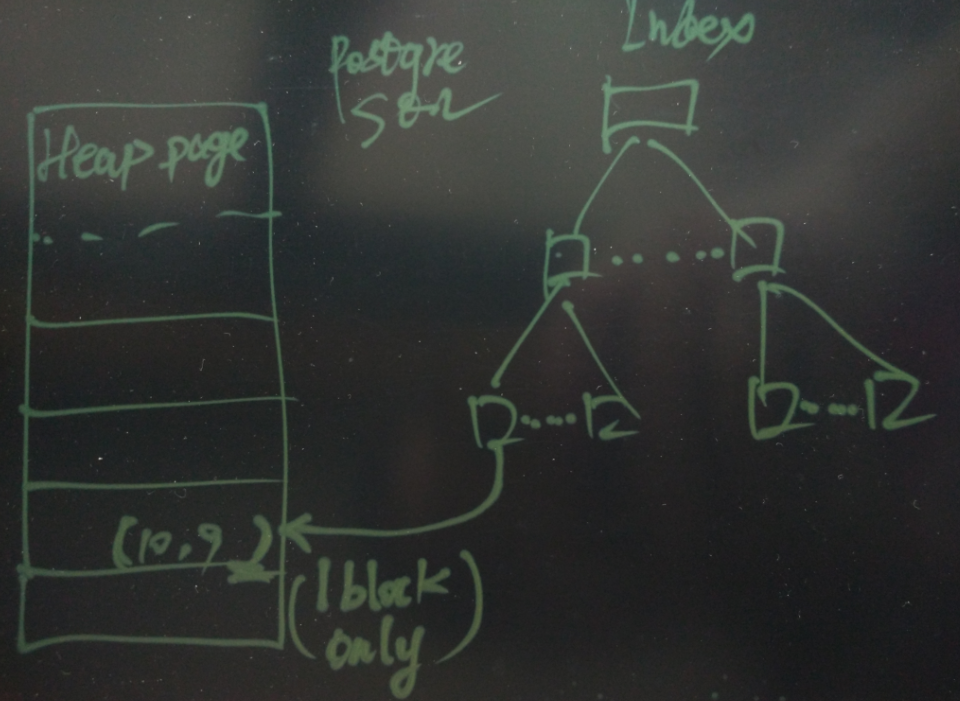 Postgre
SQL
Index
Heap page
(10,9 )
(1 block
only)